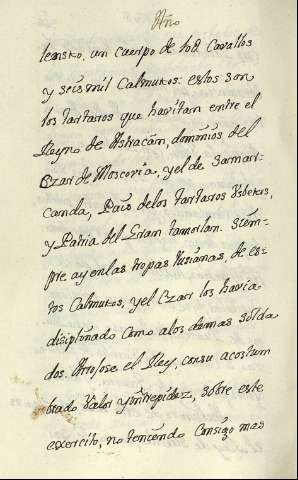 Año
lensko, un cuerpo de 10ᵈ Cavallos
y seis mil Calmukos: estos son
los tartaros que havitan entre el
Reyno de Astracàn, dominios del
Czar de Moscovia, y el de Samar-
canda, Pais de los tartaros Usbekes,
y Patria del Gran tamorlan. Siem-
pre ay en las tropas rusianas, de es-
tos Calmukos, y el Czar los havia
disiplinado como a los demas solda
dos. Arrojose el Rey, con su acostum
brado Valor y intrepidez, sobre este
exercito, no teniendo Consigo mas